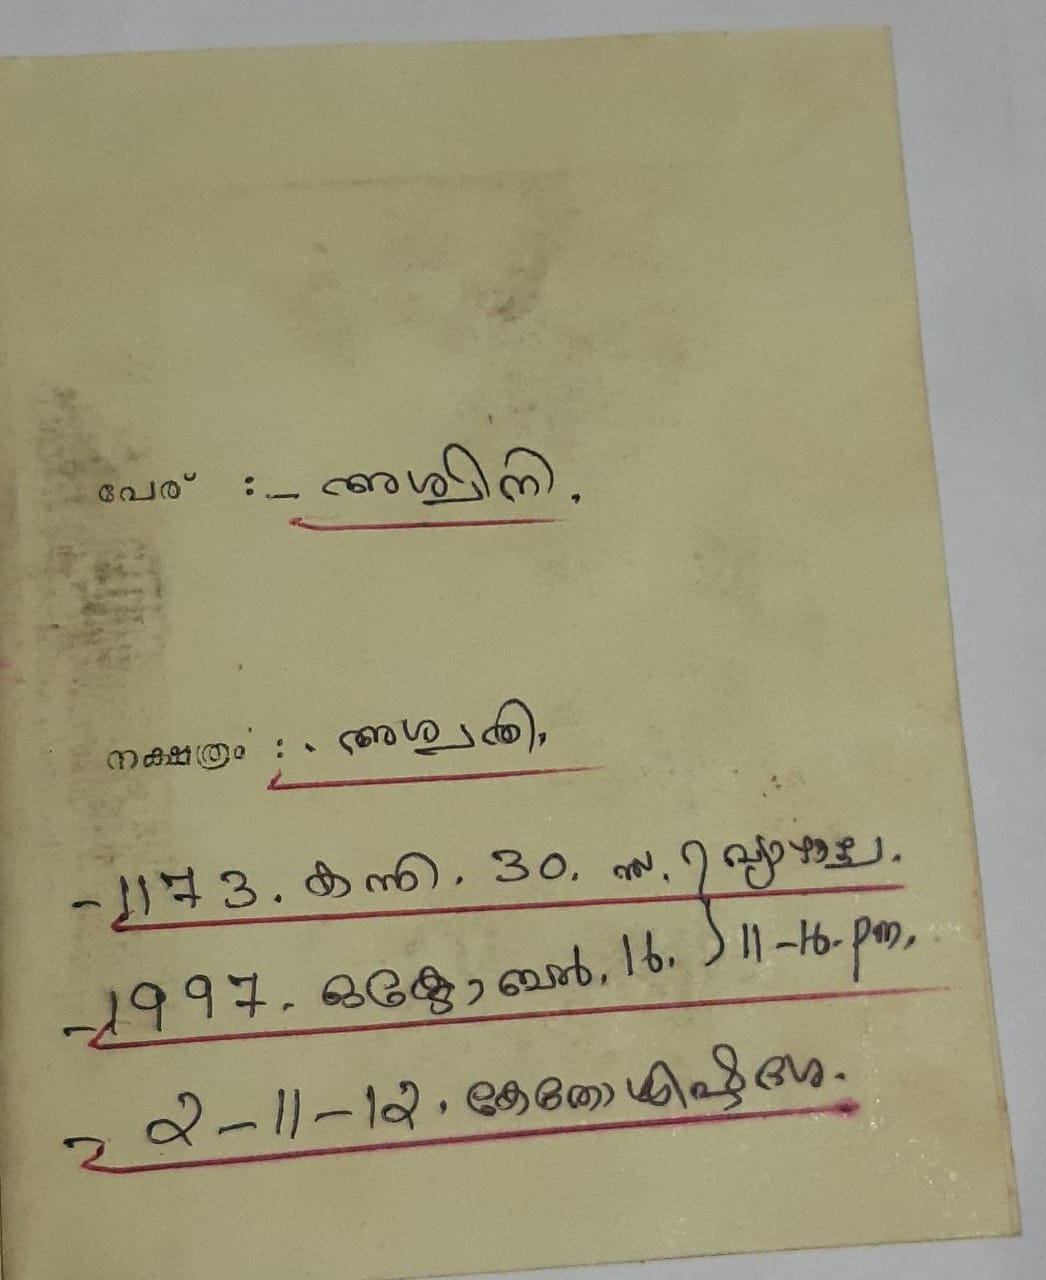 പേര് :- അശ്വിനി.
നക്ഷത്രം :- അശ്വതി.
-1173. കന്നി. 30. ന്ന. വ്യാഴാഴ്ച.
-1997. ഒക്ടോബർ. 16. 11-16-pm.
2-11-12. കേതോശിഷ്ടദശ.